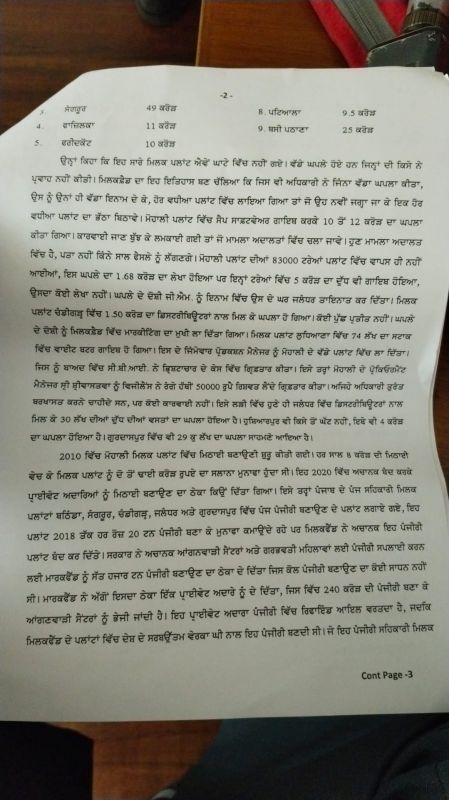 -2-
3. ਸੰਗਰੂਰ 49 ਕਰੋੜ 8. ਪਟਿਆਲਾ 9.5 ਕਰੋੜ
4. ਫਾਜ਼ਿਲਕਾ 11 ਕਰੋੜ 9. ਬਸੀ ਪਠਾਣਾ 25 ਕਰੋੜ
5. ਫਰੀਦਕੋਟ 10 ਕਰੋੜ
ਉਨ੍ਹਾਂ ਕਿਹਾ ਕਿ ਇਹ ਸਾਰੇ ਮਿਲਕ ਪਲਾਂਟ ਐਵੇਂ ਘਾਟੇ ਵਿੱਚ ਨਹੀਂ ਗਏ। ਵੱਡੇ ਘਪਲੇ ਹੋਏ ਹਨ ਜਿਨ੍ਹਾਂ ਦੀ ਕਿਸੇ ਨੇ
ਪ੍ਰਵਾਹ ਨਹੀਂ ਕੀਤੀ। ਮਿਲਕਫੈਡ ਦਾ ਇਹ ਇਤਿਹਾਸ ਬਣ ਚੱਲਿਆ ਕਿ ਜਿਸ ਵੀ ਅਧਿਕਾਰੀ ਨੇ ਜਿੰਨਾ ਵੱਡਾ ਘਪਲਾ ਕੀਤਾ,
ਉਸ ਨੂੰ ਉਨਾਂ ਹੀ ਵੱਡਾ ਇਨਾਮ ਦੇ ਕੇ, ਹੋਰ ਵਧੀਆ ਪਲਾਂਟ ਵਿੱਚ ਲਾਇਆ ਗਿਆ ਤਾਂ ਜੋ ਉਹ ਨਵੀਂ ਜਗ੍ਹਾ ਜਾ ਕੇ ਇਕ ਹੋਰ
ਵਧੀਆ ਪਲਾਂਟ ਦਾ ਭੱਠਾ ਬਿਠਾਵੇ। ਮੋਹਾਲੀ ਪਲਾਂਟ ਵਿੱਚ ਸੈਪ ਸਾਫ਼ਟਵੇਅਰ ਗਾਇਬ ਕਰਕੇ 10 ਤੋਂ 12 ਕਰੋੜ ਦਾ ਘਪਲਾ
ਕੀਤਾ ਗਿਆ। ਕਾਰਵਾਈ ਜਾਣ ਬੁੱਝ ਕੇ ਲਮਕਾਈ ਗਈ ਤਾਂ ਜੋ ਮਾਮਲਾ ਅਦਾਲਤਾਂ ਵਿੱਚ ਚਲਾ ਜਾਵੇ। ਹੁਣ ਮਾਮਲਾ ਅਦਾਲਤ
ਵਿੱਚ ਹੈ, ਪਤਾ ਨਹੀਂ ਕਿੰਨੇ ਸਾਲ ਫੈਸਲੇ ਨੂੰ ਲੱਗਣਗੇ। ਮੋਹਾਲੀ ਪਲਾਂਟ ਦੀਆਂ 83000 ਟਰੇਆਂ ਪਲਾਂਟ ਵਿੱਚ ਵਾਪਸ ਹੀ ਨਹੀਂ
ਆਈਆਂ, ਇਸ ਘਪਲੇ ਦਾ 1.68 ਕਰੋੜ ਦਾ ਲੇਖਾ ਹੋਇਆ ਪਰ ਇਨ੍ਹਾਂ ਟਰੇਆਂ ਵਿੱਚ 5 ਕਰੋੜ ਦਾ ਦੁੱਧ ਵੀ ਗਾਇਬ ਹੋਇਆ,
ਉਸਦਾ ਕੋਈ ਲੇਖਾ ਨਹੀਂ। ਘਪਲੇ ਦੇ ਦੋਸ਼ੀ ਜੀ.ਐਮ. ਨੂੰ ਇਨਾਮ ਵਿੱਚ ਉਸ ਦੇ ਘਰ ਜਲੰਧਰ ਤਾਇਨਾਤ ਕਰ ਦਿੱਤਾ। ਮਿਲਕ
ਪਲਾਂਟ ਚੰਡੀਗੜ੍ਹ ਵਿੱਚ 1.50 ਕਰੋੜ ਦਾ ਡਿਸਟਰੀਬਿਊਟਰਾਂ ਨਾਲ ਮਿਲ ਕੇ ਘਪਲਾ ਹੋ ਗਿਆ। ਕੋਈ ਪੁੱਛ ਪ੍ਰਤੀਤ ਨਹੀਂ। ਘਪਲੇ
ਦੇ ਦੋਸ਼ੀ ਨੂੰ ਮਿਲਕਫੈਡ ਵਿੱਚ ਮਾਰਕੀਟਿੰਗ ਦਾ ਮੁਖੀ ਲਾ ਦਿੱਤਾ ਗਿਆ। ਮਿਲਕ ਪਲਾਂਟ ਲੁਧਿਆਣਾ ਵਿੱਚ 74 ਲੱਖ ਦਾ ਸਟਾਕ
ਵਿੱਚ ਵਾਈਟ ਬਟਰ ਗਾਇਬ ਹੋ ਗਿਆ। ਇਸ ਦੇ ਜਿੰਮੇਵਾਰ ਪ੍ਰੋਡਕਸ਼ਨ ਮੈਨੇਜਰ ਨੂੰ ਮੋਹਾਲੀ ਦੇ ਵੱਡੇ ਪਲਾਂਟ ਵਿੱਚ ਲਾ ਦਿੱਤਾ।
ਜਿਸ ਨੂੰ ਬਾਅਦ ਵਿੱਚ ਸੀ.ਬੀ.ਆਈ. ਨੇ ਭ੍ਰਿਸ਼ਟਾਚਾਰ ਦੇ ਕੇਸ ਵਿੱਚ ਗ੍ਰਿਫ਼ਤਾਰ ਕੀਤਾ। ਇਸੇ ਤਰ੍ਹਾਂ ਮੋਹਾਲੀ ਦੇ ਪ੍ਰੋਕਿਓਰਮੈਂਟ
ਮੈਨੇਜਰ ਸ੍ਰੀ ਸ਼੍ਰੀਵਾਸਤਵਾ ਨੂੰ ਵਿਜੀਲੈਂਸ ਨੇ ਰੰਗੇ ਹੱਥੀਂ 50000 ਰੁਪੈ ਰਿਸ਼ਵਤ ਲੈਂਦੇ ਗ੍ਰਿਫ਼ਤਾਰ ਕੀਤਾ। ਅਜਿਹੇ ਅਧਿਕਾਰੀ ਤੁਰੰਤ
ਬਰਖਾਸਤ ਕਰਨੇ ਚਾਹੀਦੇ ਸਨ, ਪਰ ਕੋਈ ਕਾਰਵਾਈ ਨਹੀਂ। ਇਸੇ ਲੜੀ ਵਿੱਚ ਹੁਣੇ ਹੀ ਜਲੰਧਰ ਵਿੱਚ ਡਿਸਟਰੀਬਿਊਟਰਾਂ ਨਾਲ
ਮਿਲ ਕੇ 30 ਲੱਖ ਦੀਆਂ ਦੁੱਧ ਦੀਆਂ ਵਸਤਾਂ ਦਾ ਘਪਲਾ ਹੋਇਆ ਹੈ। ਹੁਸ਼ਿਆਰਪੁਰ ਵੀ ਕਿਸੇ ਤੋਂ ਘੱਟ ਨਹੀਂ, ਇਥੇ ਵੀ 4 ਕਰੋੜ
ਦਾ ਘਪਲਾ ਹੋਇਆ ਹੈ। ਗੁਰਦਾਸਪੁਰ ਵਿੱਚ ਵੀ 29 ਕੁ ਲੱਖ ਦਾ ਘਪਲਾ ਸਾਹਮਣੇ ਆਇਆ ਹੈ।
2010 ਵਿੱਚ ਮੋਹਾਲੀ ਮਿਲਕ ਪਲਾਂਟ ਵਿੱਚ ਮਿਠਾਈ ਬਣਾਉਣੀ ਸ਼ੁਰੂ ਕੀਤੀ ਗਈ। ਹਰ ਸਾਲ 8 ਕਰੋੜ ਦੀ ਮਿਠਾਈ
ਵੇਚ ਕੇ ਮਿਲਕ ਪਲਾਂਟ ਨੂੰ ਦੋ ਤੋਂ ਢਾਈ ਕਰੋੜ ਰੁਪਏ ਦਾ ਸਲਾਨਾ ਮੁਨਾਫਾ ਹੁੰਦਾ ਸੀ। ਇਹ 2020 ਵਿੱਚ ਅਚਾਨਕ ਬੰਦ ਕਰਕੇ
ਪ੍ਰਾਈਵੇਟ ਅਦਾਰਿਆਂ ਨੂੰ ਮਿਠਾਈ ਬਣਾਉਣ ਦਾ ਠੇਕਾ ਕਿਉਂ ਦਿੱਤਾ ਗਿਆ। ਇਸੇ ਤਰ੍ਹਾਂ ਪੰਜਾਬ ਦੇ ਪੰਜ ਸਹਿਕਾਰੀ ਮਿਲਕ
ਪਲਾਂਟਾਂ ਬਠਿੰਡਾ, ਸੰਗਰੂਰ, ਚੰਡੀਗੜ੍ਹ, ਜਲੰਧਰ ਅਤੇ ਗੁਰਦਾਸਪੁਰ ਵਿੱਚ ਪੰਜ ਪੰਜੀਰੀ ਬਣਾਉਣ ਦੇ ਪਲਾਂਟ ਲਗਾਏ ਗਏ, ਇਹ
ਪਲਾਂਟ 2018 ਤੱਕ ਹਰ ਰੋਜ਼ 20 ਟਨ ਪੰਜੀਰੀ ਬਣਾ ਕੇ ਮੁਨਾਫਾ ਕਮਾਉਂਦੇ ਰਹੇ ਪਰ ਮਿਲਕਫੈਡ ਨੇ ਅਚਾਨਕ ਇਹ ਪੰਜੀਰੀ
ਪਲਾਂਟ ਬੰਦ ਕਰ ਦਿੱਤੇ। ਸਰਕਾਰ ਨੇ ਅਚਾਨਕ ਆਂਗਨਵਾੜੀ ਸੈਂਟਰਾਂ ਅਤੇ ਗਰਭਵਤੀ ਮਹਿਲਾਵਾਂ ਲਈ ਪੰਜੀਰੀ ਸਪਲਾਈ ਕਰਨ
ਲਈ ਮਾਰਕਫੈਡ ਨੂੰ ਸੱਤ ਹਜਾਰ ਟਨ ਪੰਜੀਰੀ ਬਣਾਉਣ ਦਾ ਠੇਕਾ ਦੇ ਦਿੱਤਾ ਜਿਸ ਕੋਲ ਪੰਜੀਰੀ ਬਣਾਉਣ ਦਾ ਕੋਈ ਸਾਧਨ ਨਹੀਂ
ਸੀ। ਮਾਰਕਫੈਡ ਨੇ ਅੱਗੋਂ ਇਸਦਾ ਠੇਕਾ ਇੱਕ ਪ੍ਰਾਈਵੇਟ ਅਦਾਰੇ ਨੂੰ ਦੇ ਦਿੱਤਾ, ਜਿਸ ਵਿੱਚ 240 ਕਰੋੜ ਦੀ ਪੰਜੀਰੀ ਬਣਾ ਕੇ
ਆਂਗਣਵਾੜੀ ਸੈਂਟਰਾਂ ਨੂੰ ਭੇਜੀ ਜਾਂਦੀ ਹੈ। ਇਹ ਪ੍ਰਾਈਵੇਟ ਅਦਾਰਾ ਪੰਜੀਰੀ ਵਿੱਚ ਰਿਫਾਇੰਡ ਆਇਲ ਵਰਤਦਾ ਹੈ, ਜਦਕਿ
ਮਿਲਕਫੈਡ ਦੇ ਪਲਾਂਟਾਂ ਵਿੱਚ ਦੇਸ਼ ਦੇ ਸਰਬਉੱਤਮ ਵੇਰਕਾ ਘੀ ਨਾਲ ਇਹ ਪੰਜੀਰੀ ਬਣਦੀ ਸੀ। ਜੇ ਇਹ ਪੰਜੀਰੀ ਸਹਿਕਾਰੀ ਮਿਲਕ
Cont Page -3